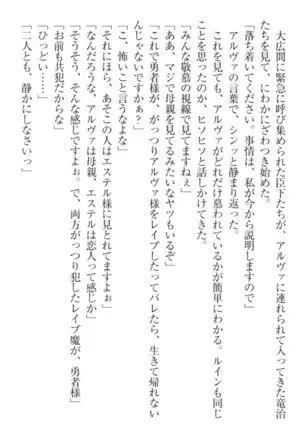 大広間に緊急に呼び集められた臣下たちが、アルヴァに連れられてきた竜治
たちを見て、にわかにざわつき始めた。
「落ち着いてください。事情は、私が今から説明しますので」
アルヴァの言葉で、シンッと静まり返った。
これを見ても、アルヴァがどれだけ慕われているかが簡単にわかる。ルインも同じ
ことを思ったのか、ヒソヒソと話しかけてきた。
「みんな敬慕の視線で見てますねぇ」
「ああ、マジで母親を見てるみたいなヤツもいるぞ」
「これで勇者様が、がっつりアルヴァ様をレイプしたってバレたら、生きて帰れない
んじゃないですかぁ?」
「こ、怖いこと言うなよな」
「それにほら、あそこの人はエステル様に見とれてますよぉ」
「なんだろうな、アルヴァは母親、エステルは恋人って感じか」
「そうそう、そんな感じですよぉ。で、両方がっつり犯したレイプ魔が、勇者様」
「お前も共犯だからな」
「ひっどい……」
「二人とも、静かにしなさいっ」